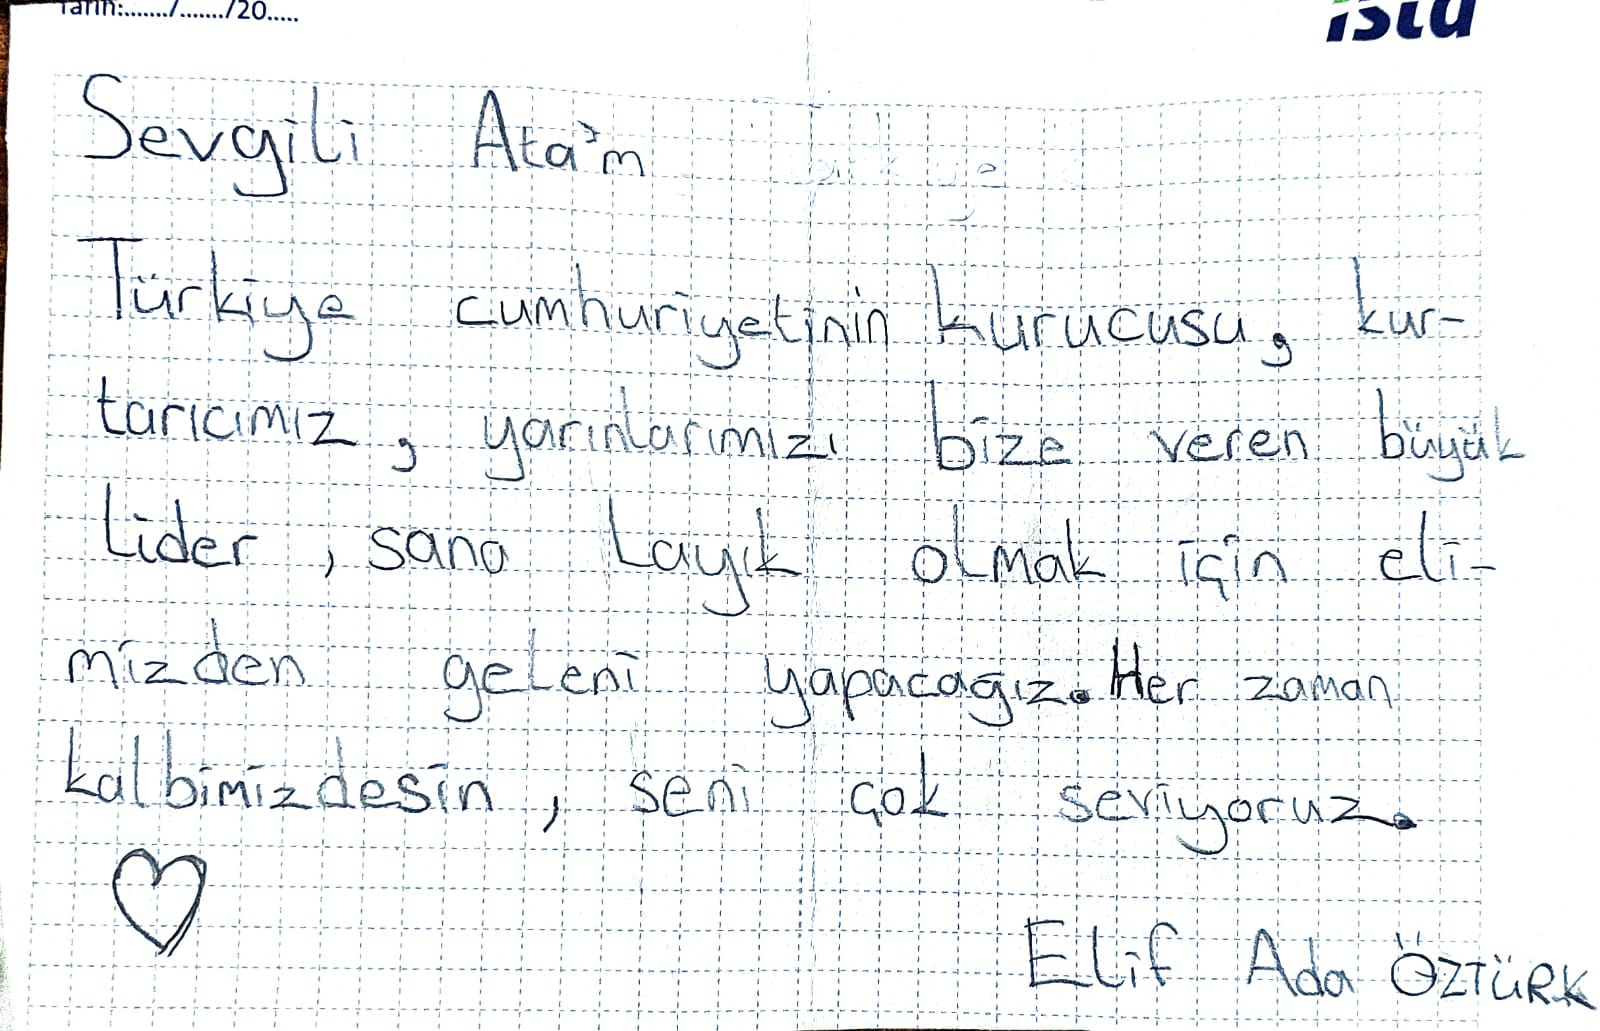 Tarih:......./......./20.....
ista
Sevgili Ata'm
Türkiye cumhuriyetinin kurucusu, kur-
tarıcımız, yarınlarımızı bize veren büyük
lider, sana layık olmak için eli-
mizden geleni yapacağız. Her zaman
kalbimizdesin, seni çok seviyoruz.
Elif Ada ÖZTÜRK